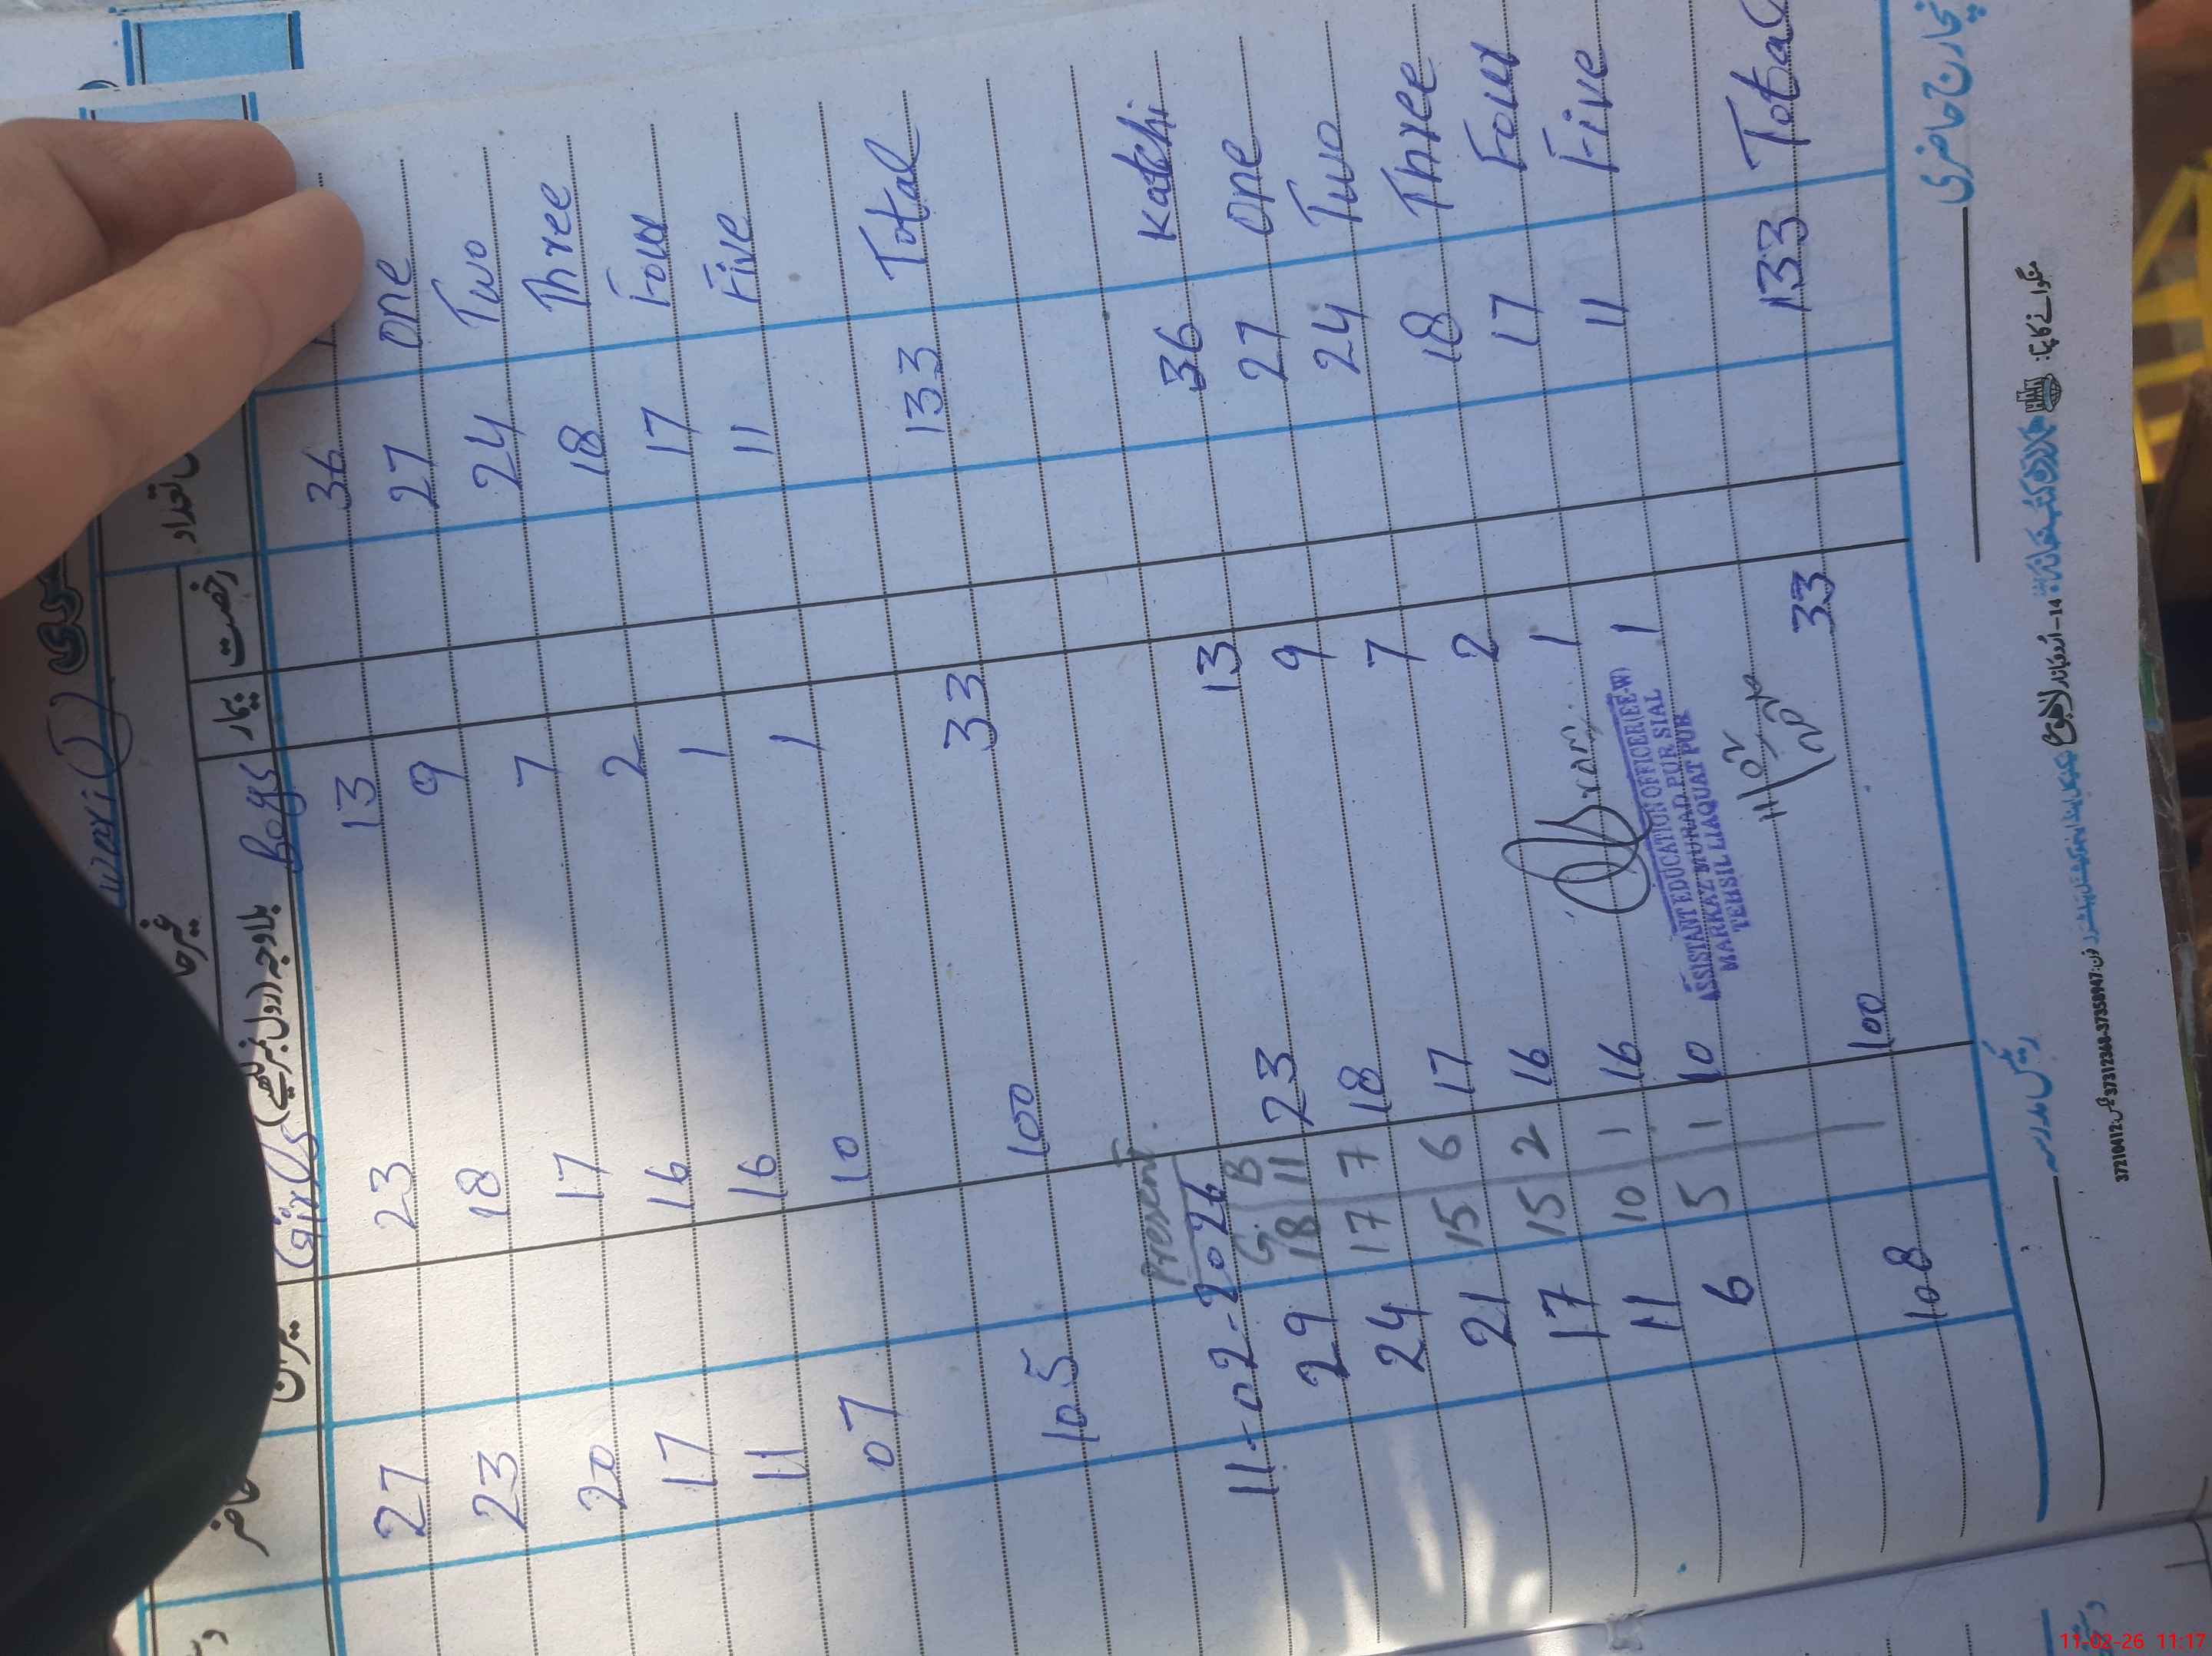 رخصت
بیمار
بلاوجہ (رول نمبر لکھیے)
میزان
حاضر
Boys Girls
36 13 23 27
One 27 9 18 23
Two 24 7 17 20
Three 18 2 16 17
Four 17 1 16 11
Five 11 1 10 07
Total 133 33 100 105
Present
11-02-2026
G. B
Katchi 36 13 23 11 18 29
One 27 9 18 7 17 24
Two 24 7 17 6 15 21
Three 18 2 16 2 15 17
Four 17 1 16 1 10 11
Five 11 1 10 1 5 6
ASSISTANT EDUCATION OFFICER (EE-W)
MARKAZ MURAD PUR SIAL
TEHSIL LIAQUAT PUR
Total 133 33 100 108
انچارج حاضری
رئیس مدرسہ
14-اردو بازار لاہور
11-02-26 11:17